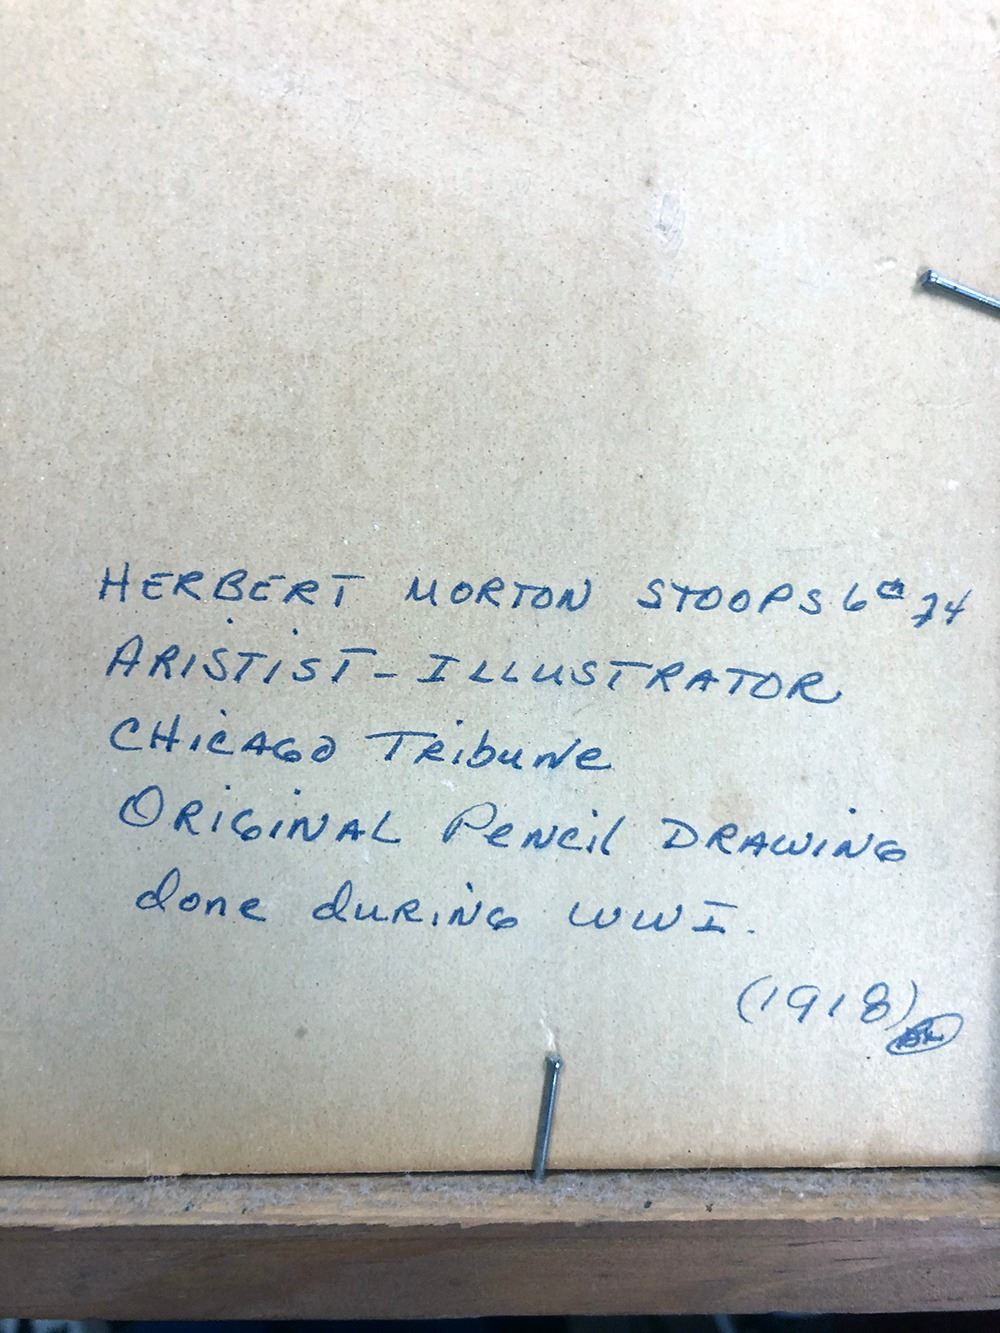 HERBERT MORTON STOOPS
ARISTIST - ILLUSTRATOR
CHICAGO TRIBUNE
ORIGINAL PENCIL DRAWING
done DURING WWI.
(1918)